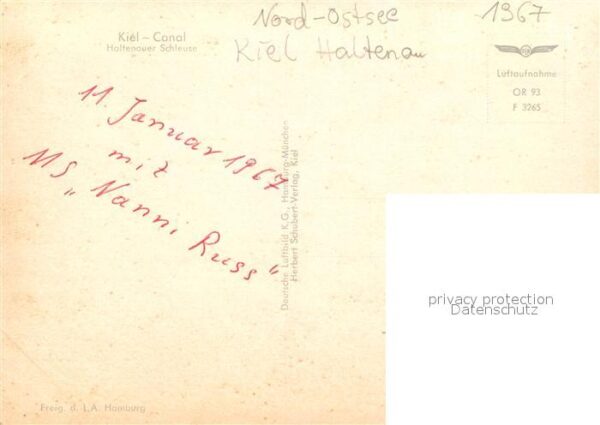 Nord-Ostsee
Kiel Haltenau
1967
Kiel – Canal
Haltenauer Schleuse
Luftaufnahme
OR 93
F 3265
11. Januar 1967
mit
MS „Nanni Russ“
Deutsche Luftbild K.G., Hamburg-München
Herbert Schubert-Verlag, Kiel
privacy protection
Datenschutz
Freig. d. L.A. Hamburg